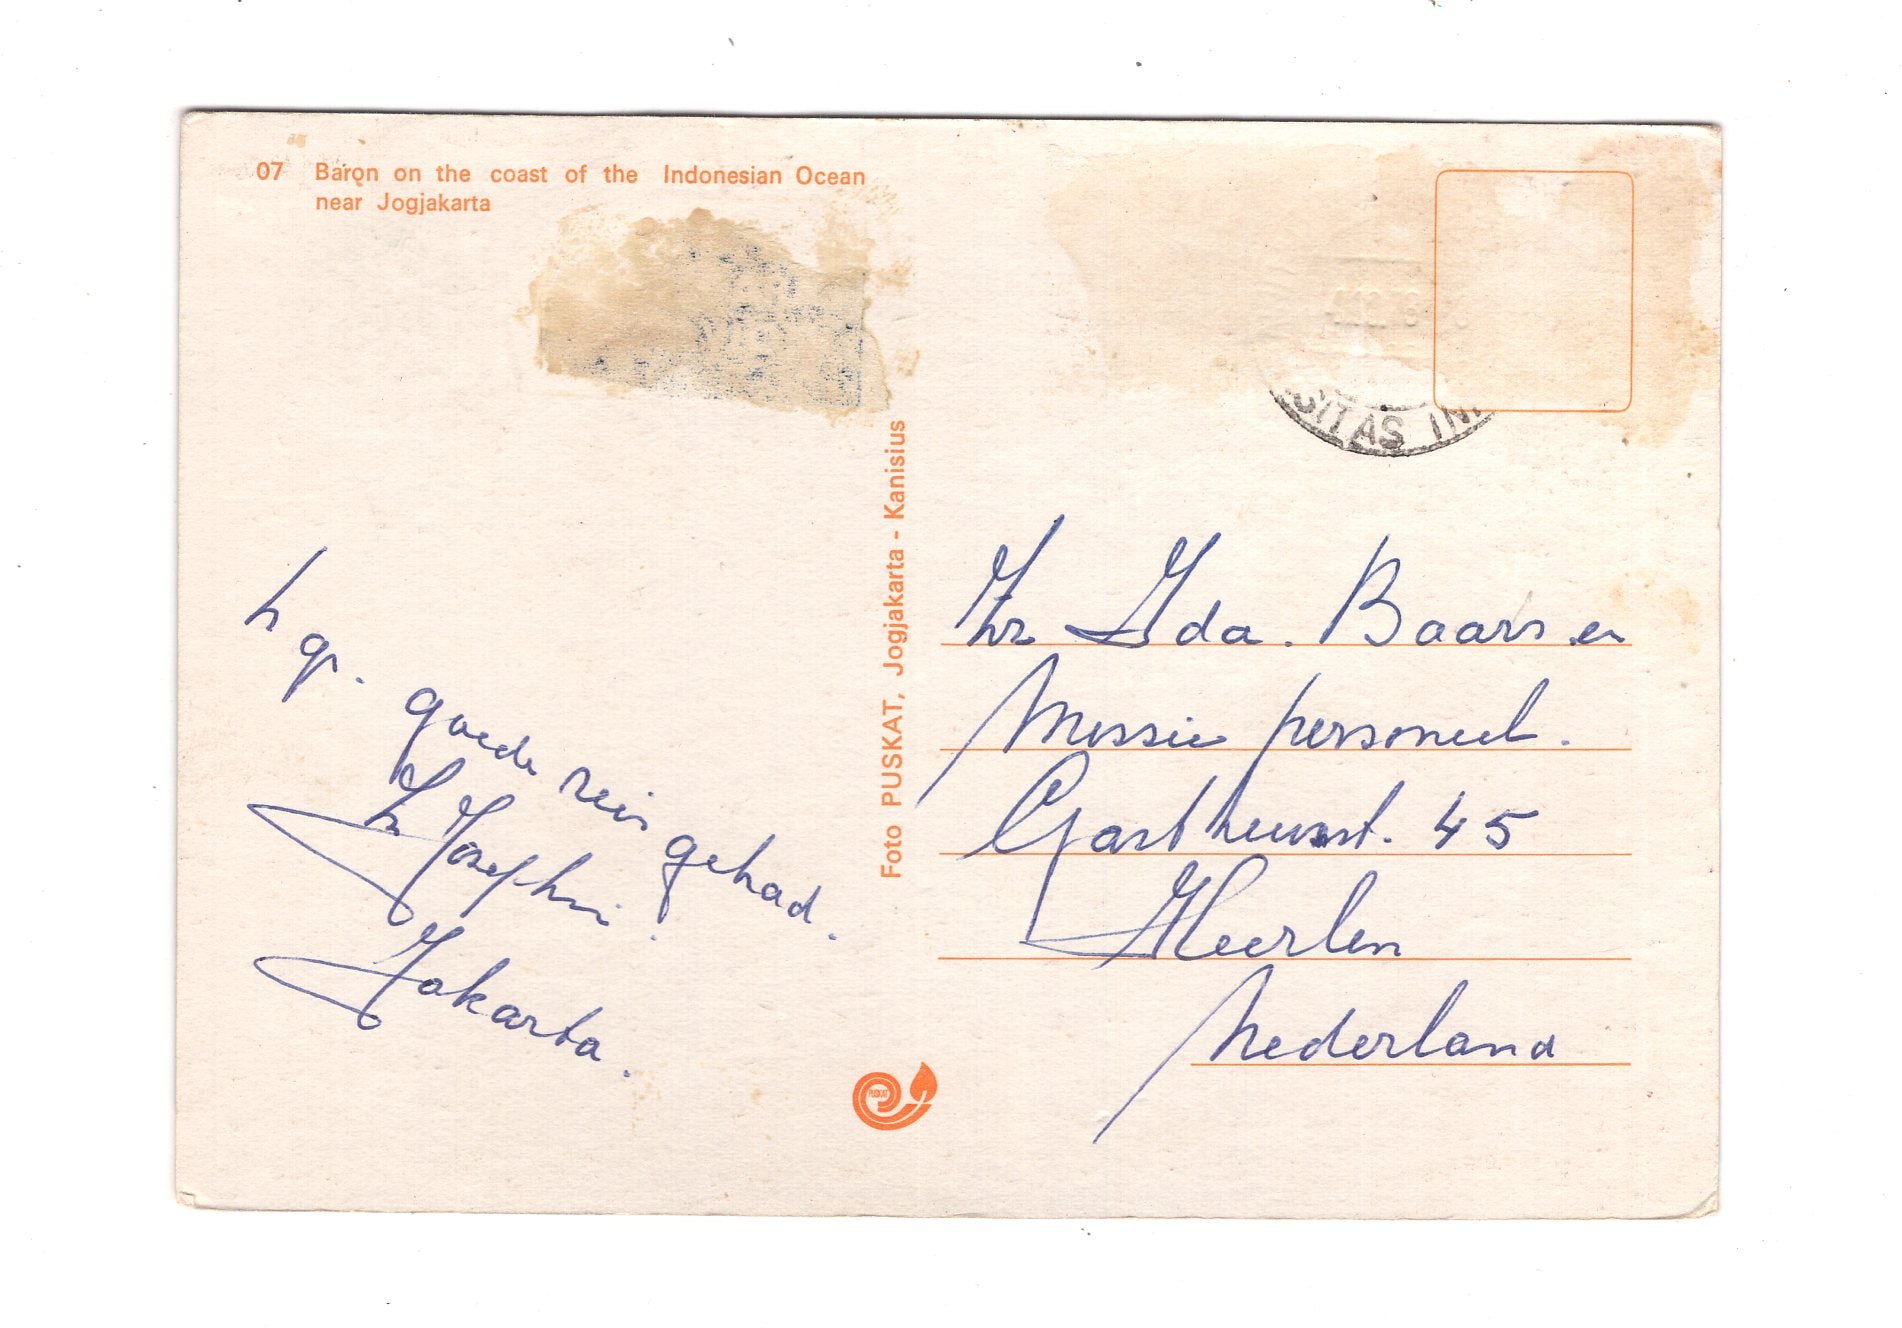 07 Baron on the coast of the Indonesian Ocean
near Jogjakarta
h gr.
goede reis gehad.
Zr Josephi.
Jakarta.
Foto PUSKAT, Jogjakarta - Kanisius
PUSKAT
SITAS IN
Zr Ida. Baars en
Missie personeel.
Gasthuisst. 45
Heerlen
Nederland